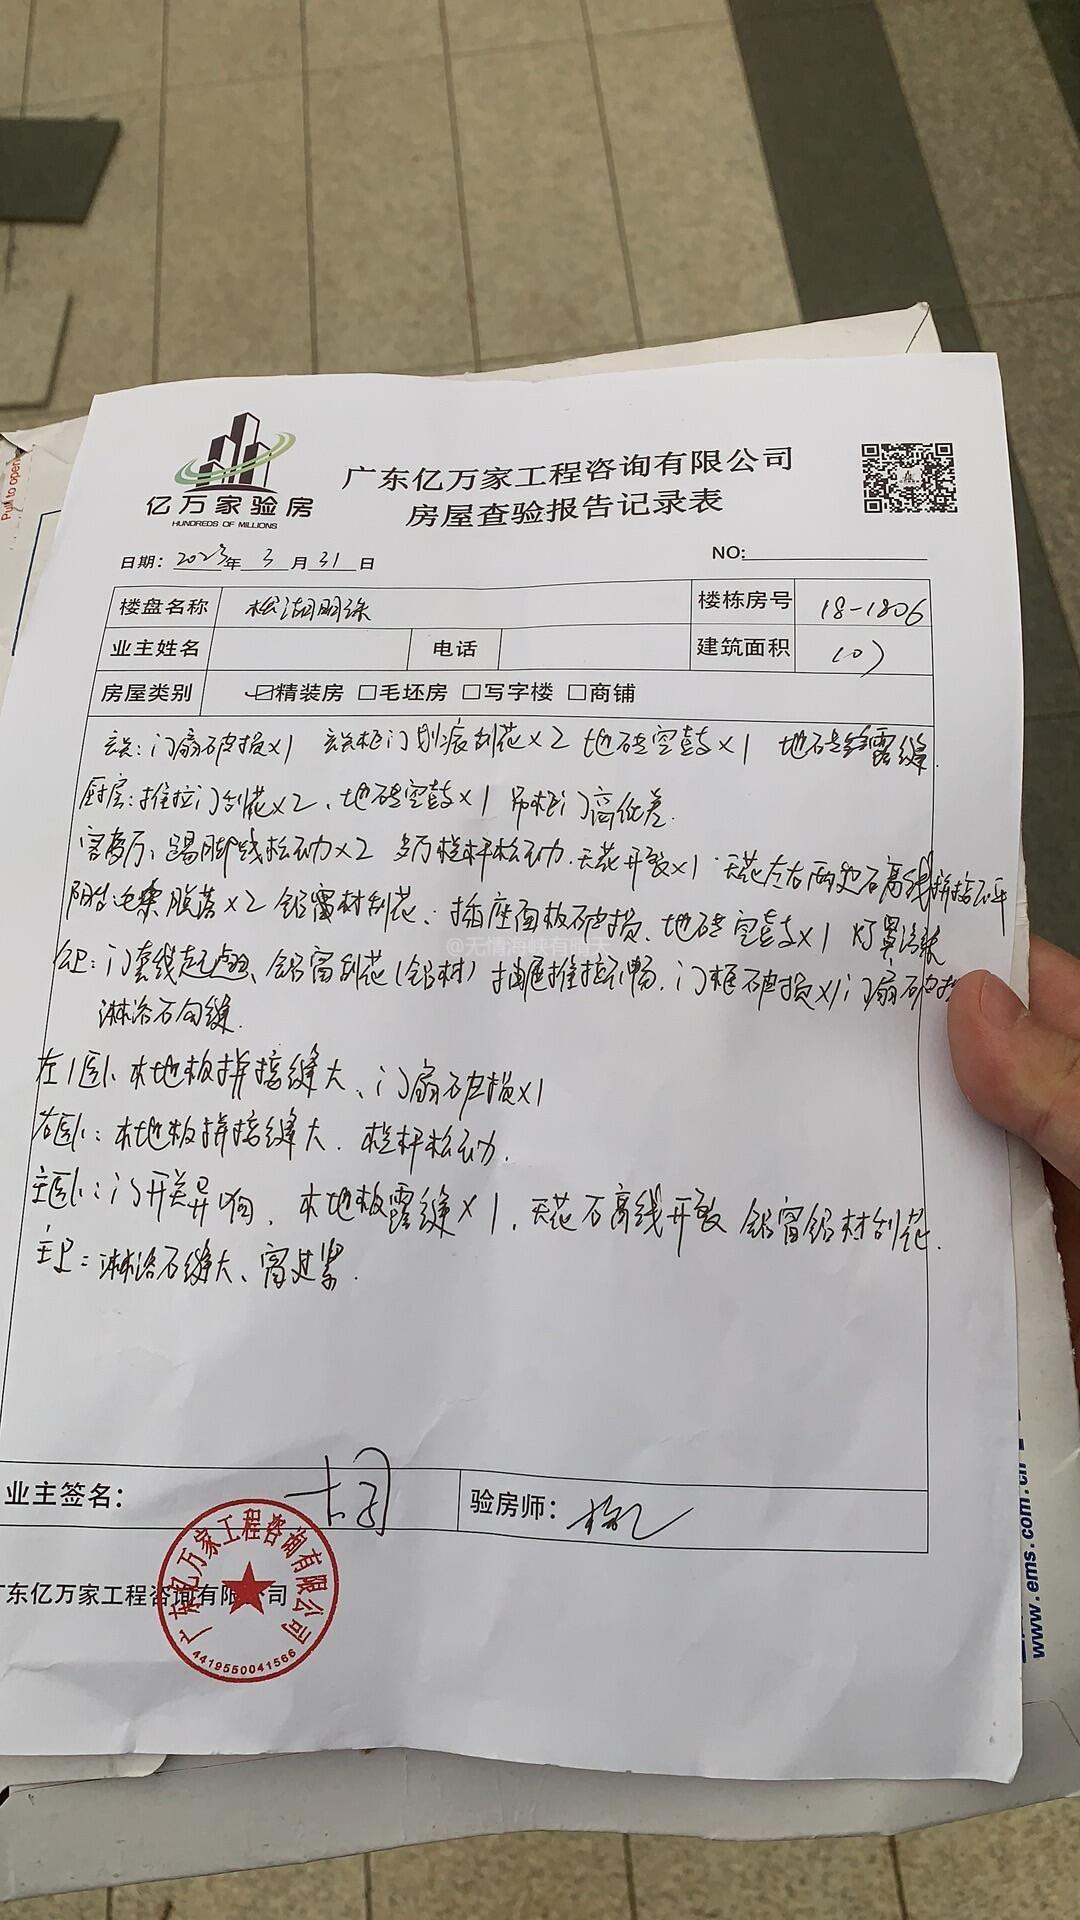 Push to open
亿万家验房
HUNDREDS OF MILLIONS
广东亿万家工程咨询有限公司
房屋查验报告记录表
日期: 2023年 3 月 31 日
NO:
楼盘名称 松湖明珠 楼栋房号 18-1806
业主姓名 电话 建筑面积 107
房屋类别 ☑精装房 □毛坯房 □写字楼 □商铺
玄关: 门扇破损×1 玄关柜门划痕刮花×2 地砖空鼓×1 地砖 露缝.
厨房: 推拉门刮花×2、地砖空鼓×1 吊柜门高低差.
客餐厅: 踢脚线松动×2 多方栏杆松动. 天花开裂×1. 天花左右两边石膏线拼接不平
阳台: 脱落×2 铝窗材刮花、插座面板破损、地砖空鼓×1 灯具
@无情海峡有明天
公卫: 门套线起 、铝窗刮花(铝材) 推拉不畅. 门框破损×1 门扇破损
淋浴石 缝.
左1卧: 木地板拼接缝大、门扇破损×1
右卧: 木地板拼接缝大. 栏杆松动.
主卧: 门开关异响. 木地板露缝×1, 天花石膏线开裂 铝窗铝材刮花.
主卫: 淋浴石缝大、窗过紧.
业主签名: 验房师:
广东亿万家工程咨询有限公司
广东亿万家工程咨询有限公司
4419550041566
www.ems.com.cn